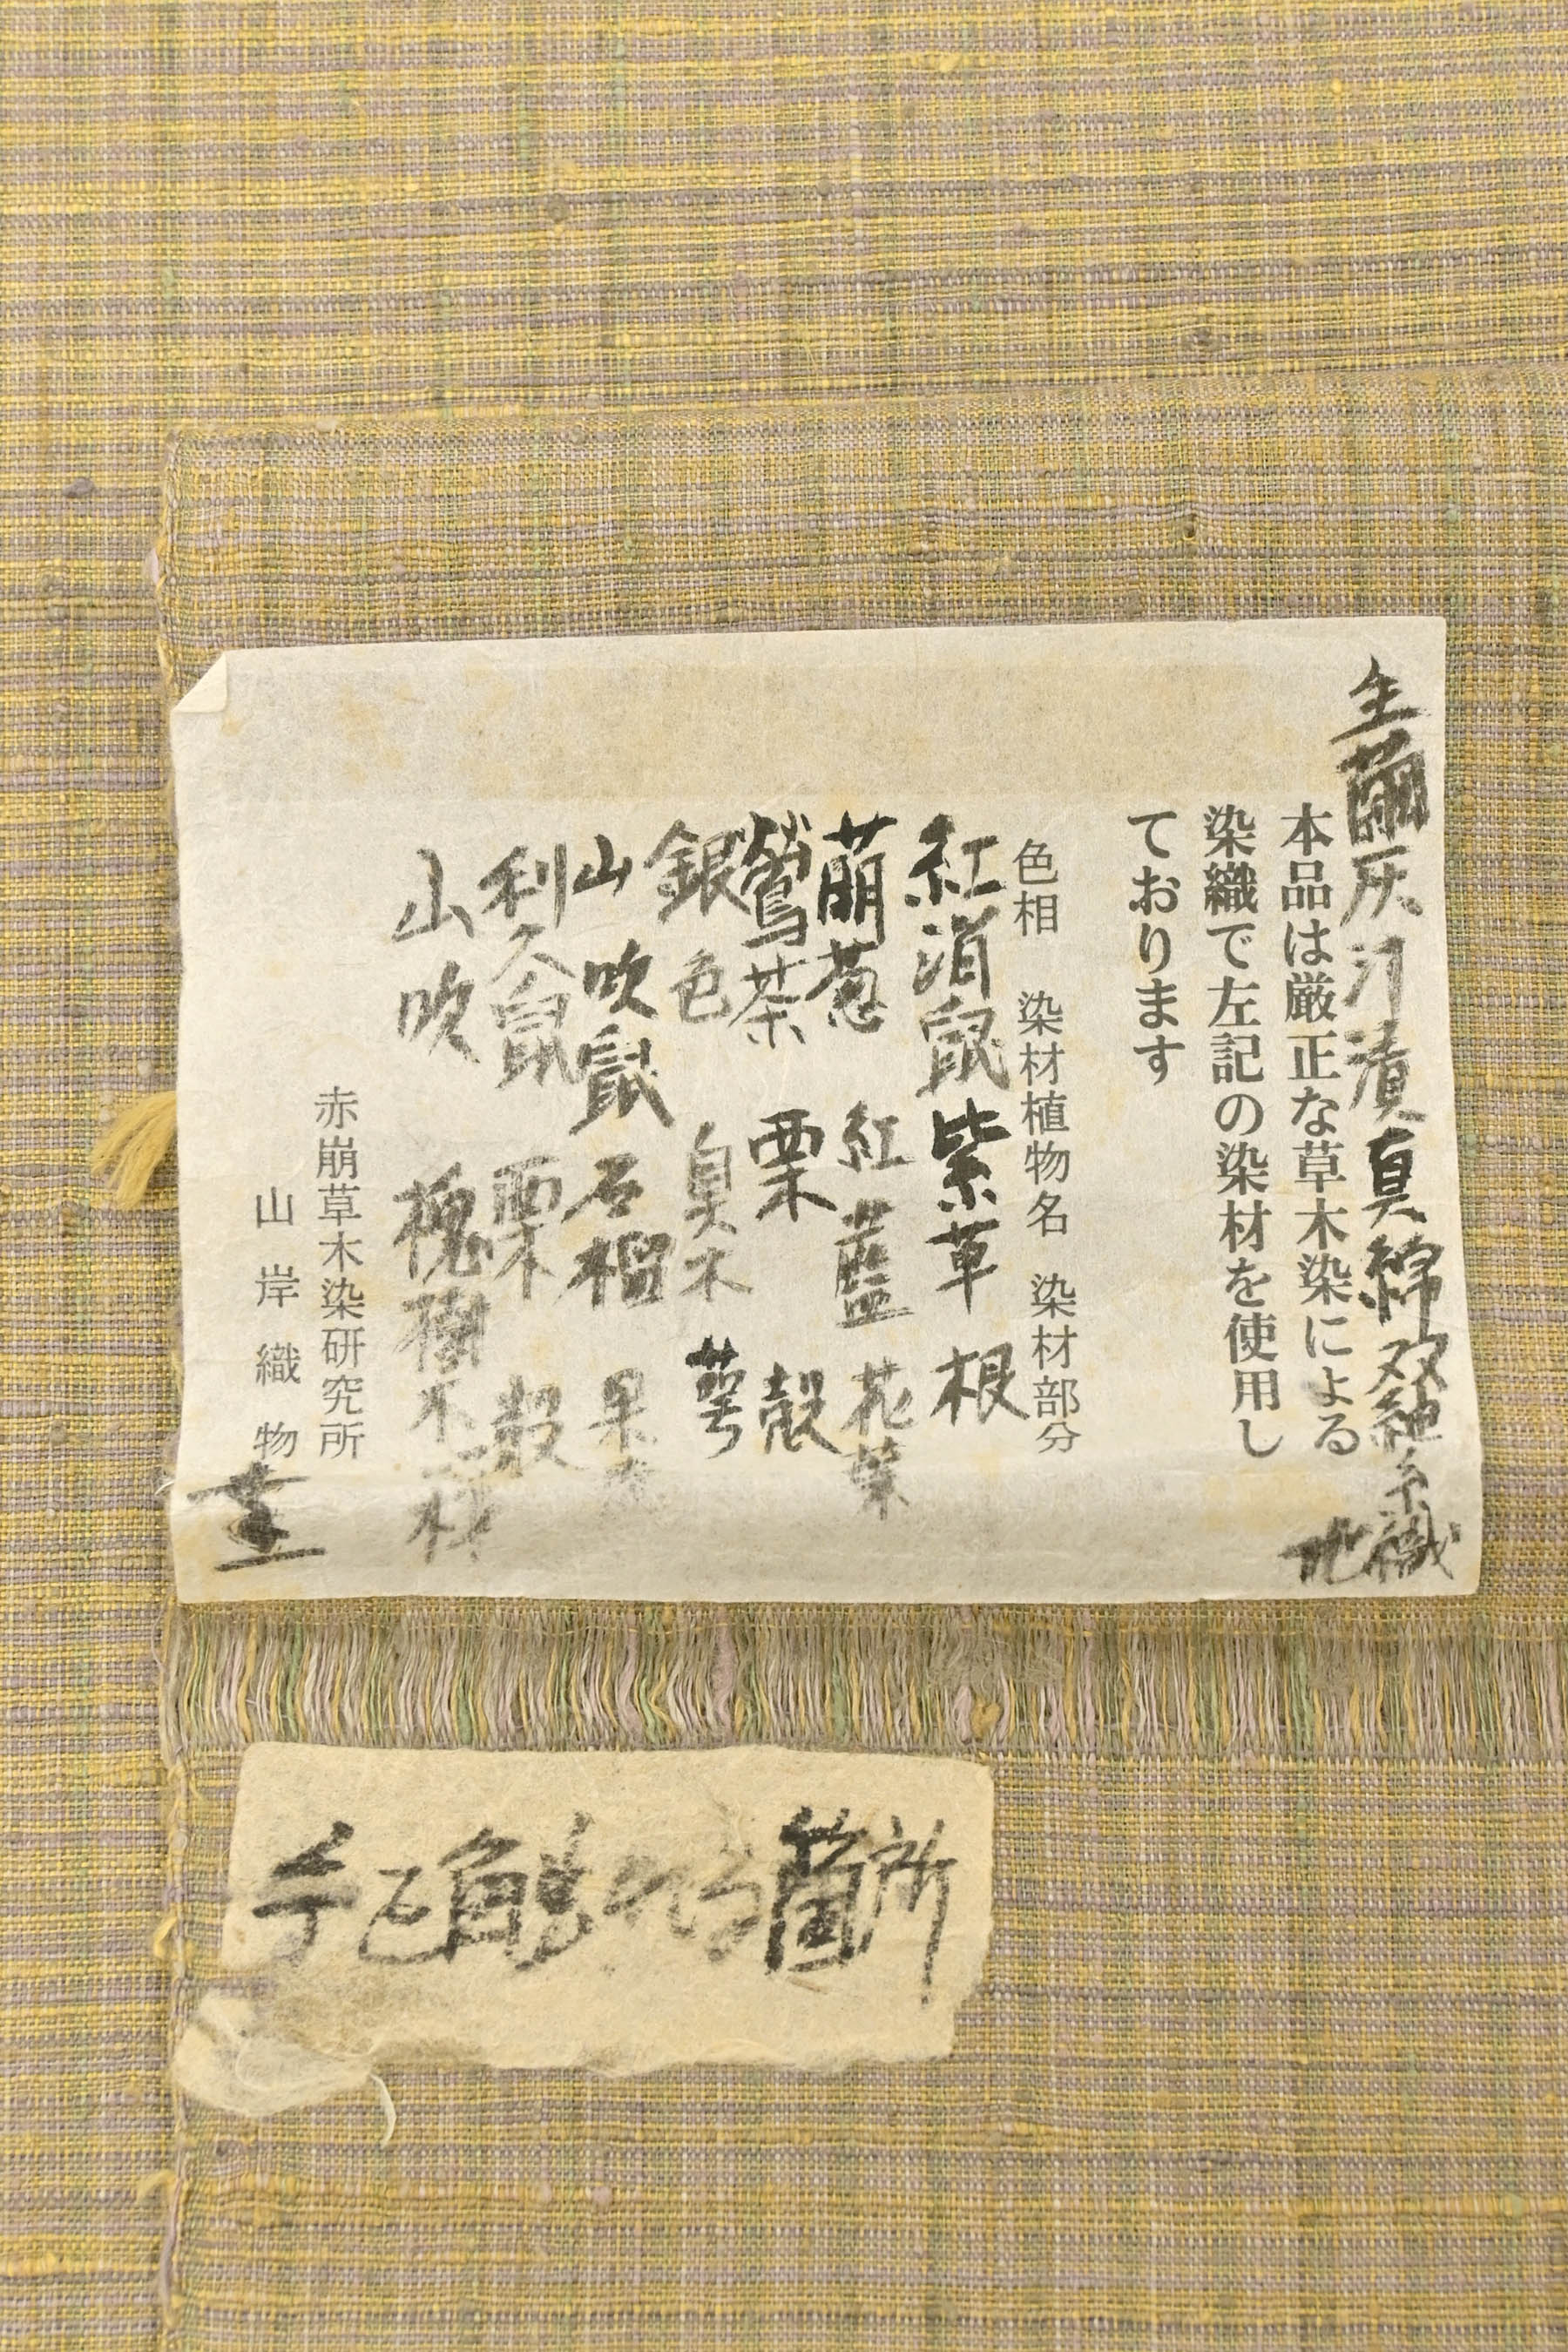 生繭灰汁漬真綿双紬糸織
地
本品は厳正な草木染による
染織で左記の染材を使用し
ております
色相 染材植物名 染材部分
紅消鼠 紫草 根
萠葱 紅藍 花葉
鶯茶 栗 殻
銀色 臭木 萼
山吹鼠 石榴 果
利久鼠 栗 殻
山吹 槐樹 木材
赤崩草木染研究所
山岸織物
手を触れる箇所